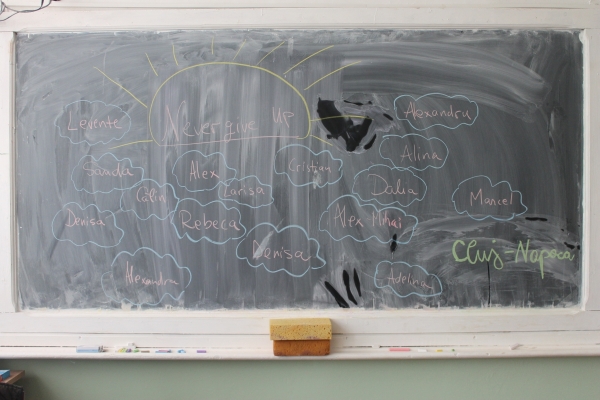 Never give Up
Levente
Alexandru
Alina
Sanda
Alex
Cristian
Călin
Larisa
Dalia
Marcel
Denisa
Rebeca
Alex Mihai
Denisa
Cluj-Napoca
Alexandra
Adelina